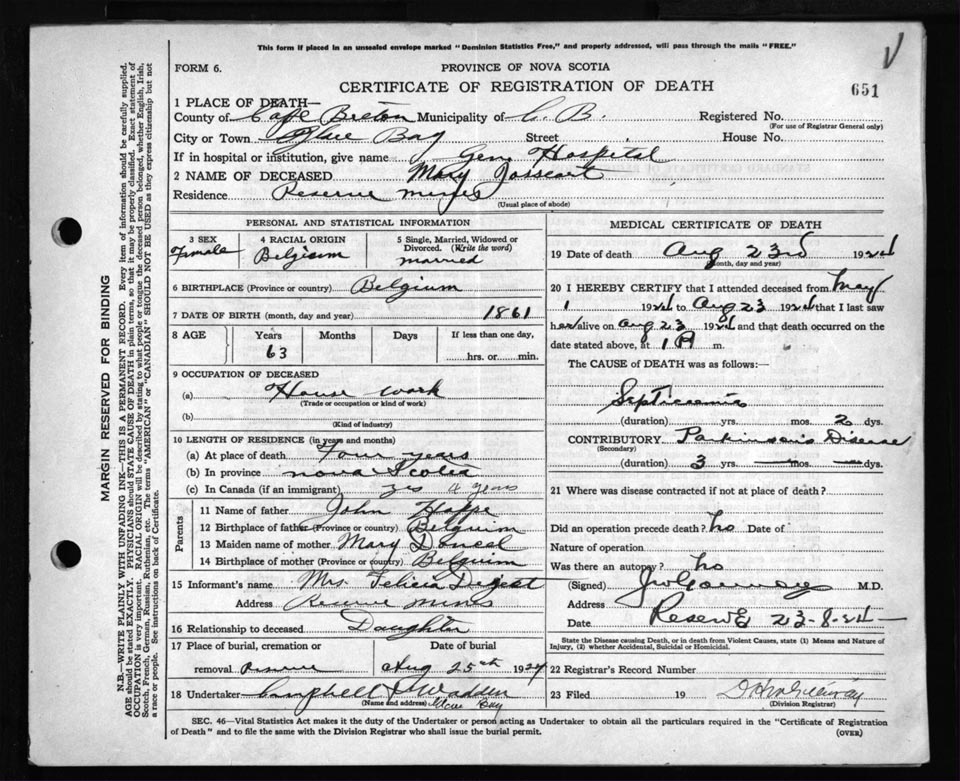 This form if placed in an unsealed envelope marked "Dominion Statistics Free," and properly addressed, will pass through the mails "FREE."
FORM 6.
PROVINCE OF NOVA SCOTIA
CERTIFICATE OF REGISTRATION OF DEATH
651
1 PLACE OF DEATH—
County of Cape Breton Municipality of C. B. Registered No.
(For use of Registrar General only)
City or Town Glace Bay Street House No.
If in hospital or institution, give name Gen. Hospital
2 NAME OF DECEASED Mary
Residence Reserve Mines
(Usual place of abode)
PERSONAL AND STATISTICAL INFORMATION
3 SEX Female
4 RACIAL ORIGIN Belgium
5 Single, Married, Widowed or Divorced. (Write the word) married
6 BIRTHPLACE (Province or country) Belgium
7 DATE OF BIRTH (month, day and year) 1861
8 AGE Years 63 Months Days If less than one day, hrs. or min.
9 OCCUPATION OF DECEASED
(a) House work
(Trade or occupation or kind of work)
(b)
(Kind of industry)
10 LENGTH OF RESIDENCE (in years and months)
(a) At place of death Four years
(b) In province Nova Scotia
(c) In Canada (if an immigrant) yes 4 years
Parents
11 Name of father John
12 Birthplace of father (Province or country) Belguim
13 Maiden name of mother Mary
14 Birthplace of mother (Province or country) Belguim
15 Informant's name Mrs. Felicia
Address Reserve Mines
16 Relationship to deceased Daughter
17 Place of burial, cremation or removal Reserve
Date of burial Aug 25th 1924
18 Undertaker Campbell
(Name and address) Glace Bay
MEDICAL CERTIFICATE OF DEATH
19 Date of death Aug 23rd 1924
(Month, day and year)
20 I HEREBY CERTIFY that I attended deceased from May
1 1924 to Aug 23 1924 that I last saw
her alive on Aug 23 1924 and that death occurred on the
date stated above, at 1 A m.
The CAUSE OF DEATH was as follows:
Septicaemia
(duration) yrs. mos. 2 dys.
CONTRIBUTORY Parkinson's Disease
(Secondary)
(duration) 3 yrs. — mos. — dys.
21 Where was disease contracted if not at place of death?
Did an operation precede death? no Date of
Nature of operation
Was there an autopsy? no
(Signed) M.D.
Address Reserve
Date 23-8-24
State the Disease causing Death, or in death from Violent Causes, state (1) Means and Nature of
Injury, (2) whether Accidental, Suicidal or Homicidal.
22 Registrar's Record Number
23 Filed 19
(Division Registrar)
SEC. 46—Vital Statistics Act makes it the duty of the Undertaker or person acting as Undertaker to obtain all the particulars required in the "Certificate of Registration
of Death" and to file the same with the Division Registrar who shall issue the burial permit.
(OVER)
MARGIN RESERVED FOR BINDING
N.B.—WRITE PLAINLY WITH UNFADING INK—THIS IS A PERMANENT RECORD. Every item of information should be carefully supplied.
AGE should be stated EXACTLY. PHYSICIANS should STATE CAUSE OF DEATH in plain terms, so that it may be properly classified. Exact statement of
OCCUPATION is very important. RACIAL ORIGIN will be described by stating to what people or tongue the deceased person belonged, whether English, Irish,
Scotch, French, German, Russian, Ruthenian, etc. The terms "AMERICAN" or "CANADIAN" SHOULD NOT BE USED as they express citizenship but not
a race or people. See instructions on back of Certificate.